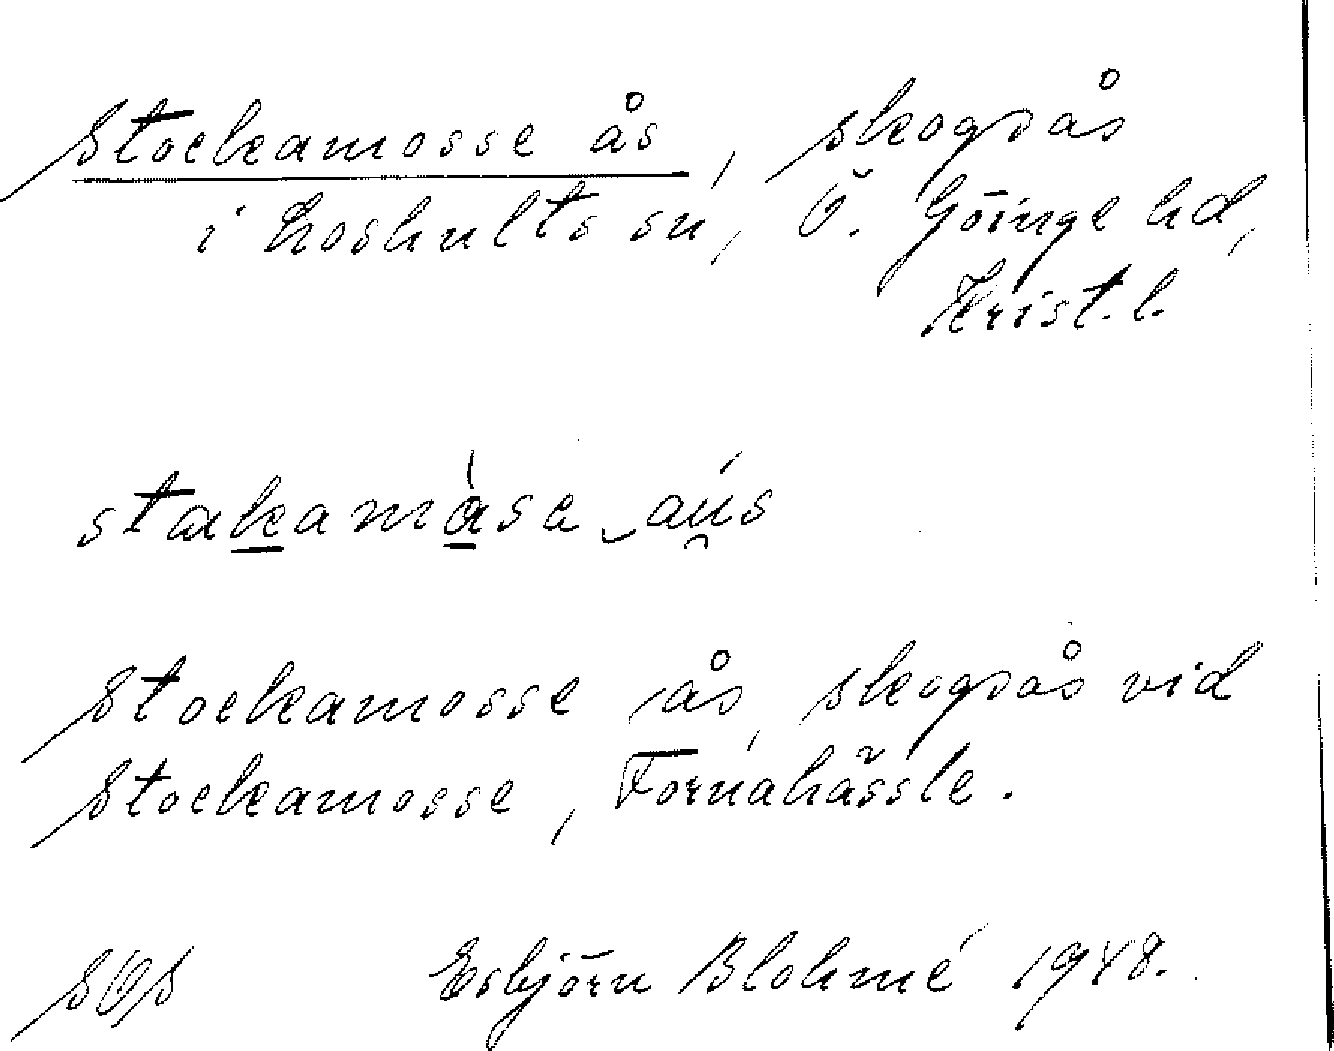 Stockamosse ås, skogsås
i Loshults sn, Ö. Göinge hd,
Krist. l.
stakamàsa aús
Stockamosse ås, skogsås vid
Stockamosse, Fornahässle.
SOS Esbjörn Blohmé 1948.